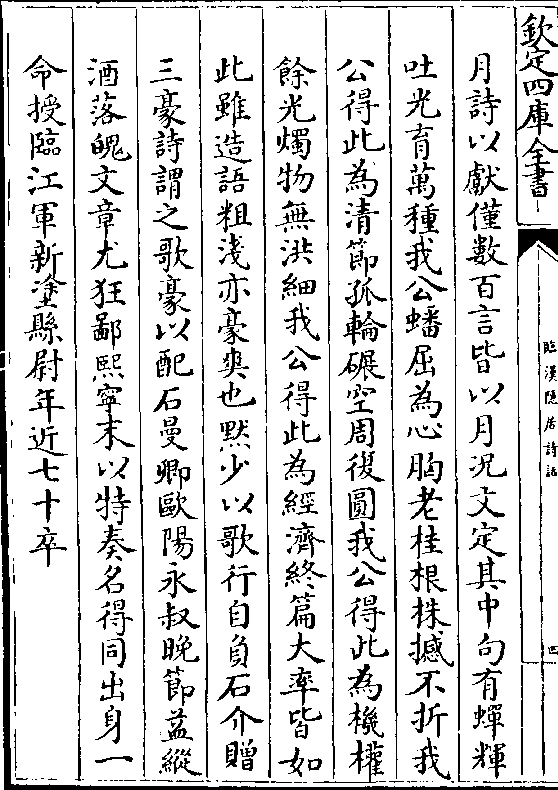 欽定四庫全書
臨漢隱居詩話
四
月詩以獻僅數百言皆以月况文定其中句有蟬輝
吐光育萬種我公蟠屈為心胸老桂根株撼不折我
公得此為清節孤輪碾空周復圓我公得此為機權
餘光燭物無洪細我公得此為經濟終篇大率皆如
此雖造語粗淺亦豪爽也黙少以歌行自負石介贈
三豪詩謂之歌豪以配石曼卿歐陽永叔晚節益縱
酒落魄文章尤狂鄙熙寧末以特奏名得同出身一
命授臨江軍新塗縣尉年近七十卒